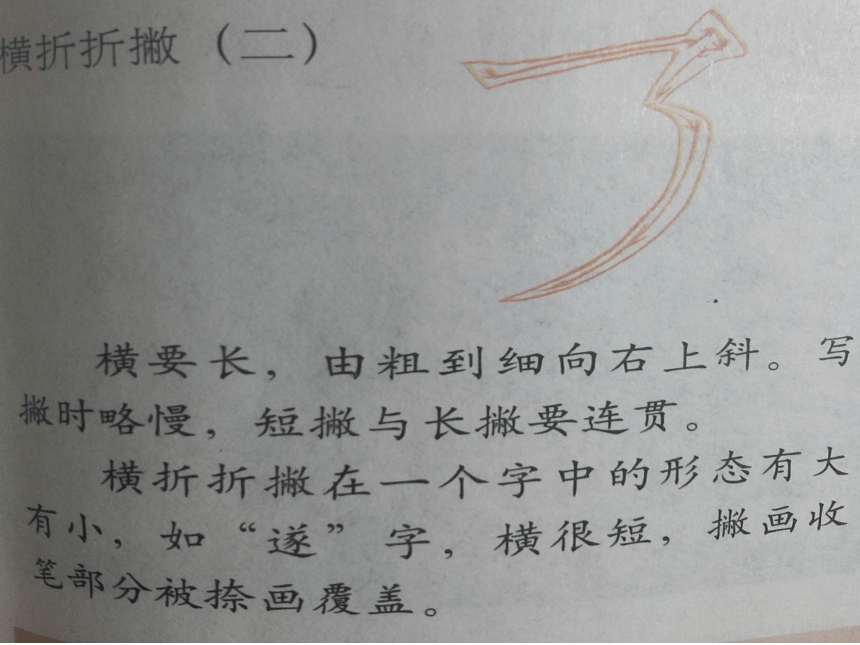 横折折撇（二）
横要长，由粗到细向右上斜。写
撇时略慢，短撇与长撇要连贯。
横折折撇在一个字中的形态有大
有小，如“遂”字，横很短，撇画收
笔部分被捺画覆盖。